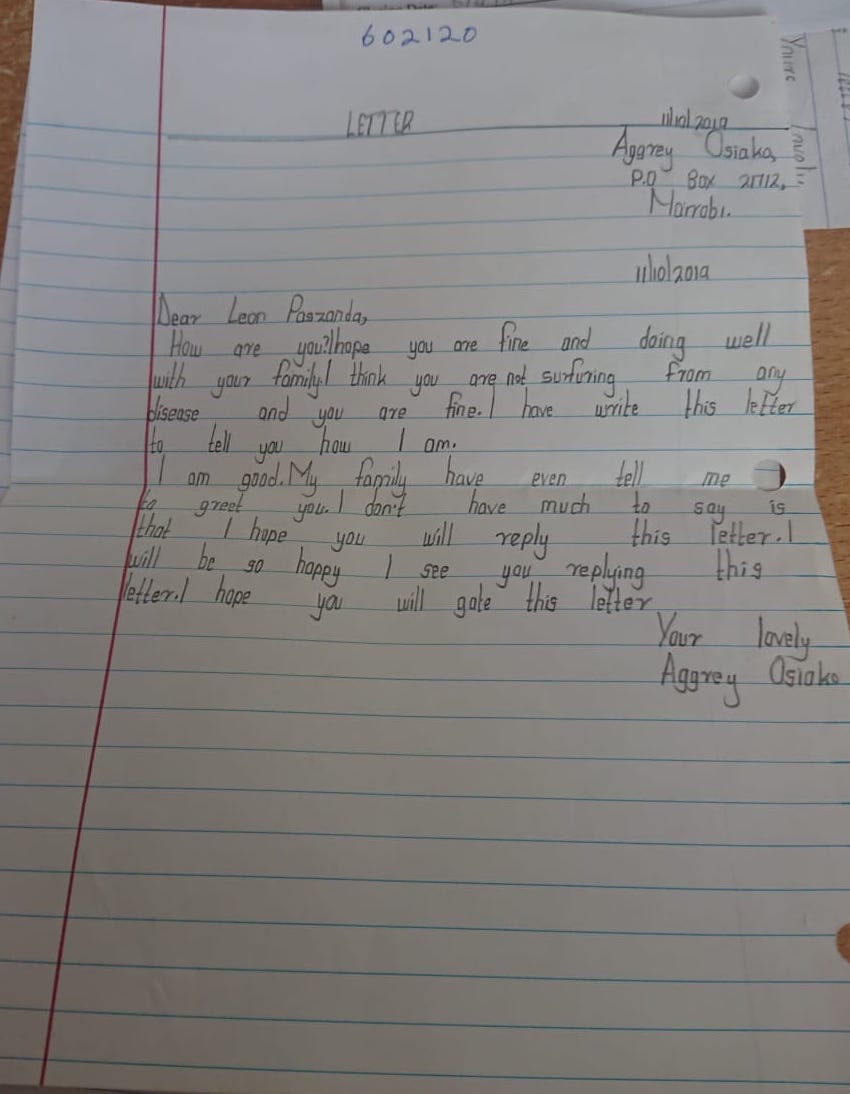 602120
LETTER
11/10/2019
Aggrey Osiako,
P.O Box 21712,
Marrobi.
11/10/2019
Dear Leon Paszanda,
How are you?I hope you are fine and doing well
with your family.I think you are not surfuring from any
disease and you are fine.I have write this letter
to tell you how I am.
I am good.My family have even tell me
to greet you.I don't have much to say is
that I hope you will reply this letter.I
will be so happy I see you replying this
letter.I hope you will gate this letter
Your lovely
Aggrey Osiako